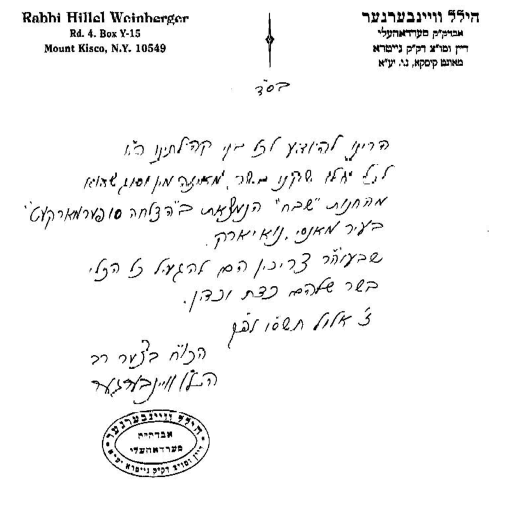 Rabbi Hillel Weinberger
Rd. 4. Box Y-15
Mount Kisco, N.Y. 10549
הילל וויינבערגער
אבדק״ק סערדאהעלי
דיין ומו״צ דק״ק נייטרא
מאונט קיסקא, נ.י. יע״א
בס״ד
הריני להודיע לכל בני קהילתינו הי״ו
לכל אלו שקנו בשר, מאיזה מין וסוג שהוא
מהחנות "שבח" הנמצאת ב"הצלחה סופערמארקעט"
בעיר מאנסי, נוא יארק.
שבעוה״ר צריכין הם להגעיל כל הכלי
בשר שלהם כדת וכדין.
אלול תשס״ו לפ״ק
הכו״ח בצער רב
וויינבערגער
הילל וויינבערגער
אבדק״ק
סערדאהעלי
דיין ומו״צ דק״ק נייטרא יע״א